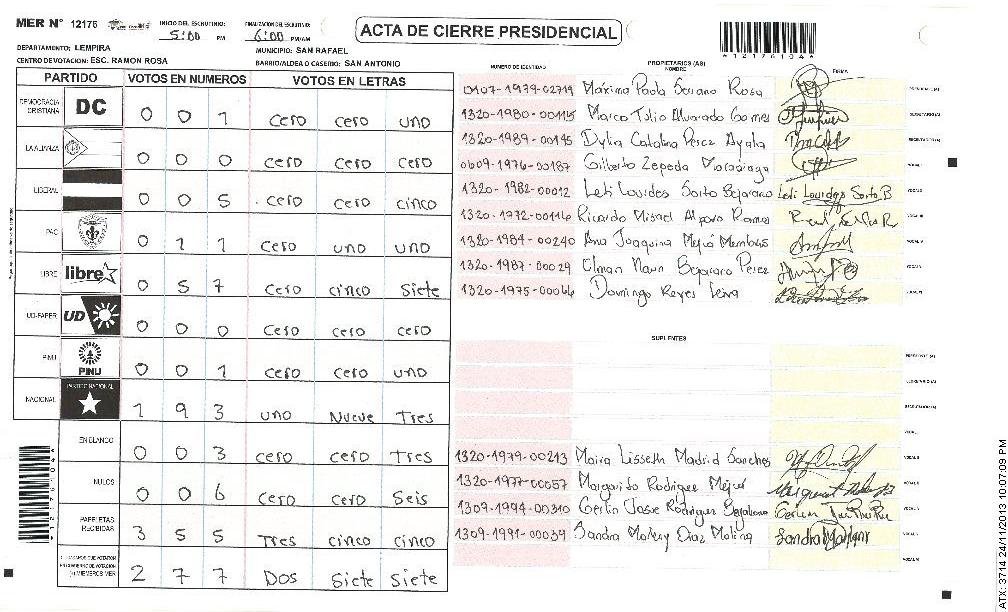 MER N° 12176
INICIO DEL ESCRUTINIO: 5:00 PM
FINALIZACION DEL ESCRUTINIO: 6:00 PM/AM
ACTA DE CIERRE PRESIDENCIAL
*12176104*
DEPARTAMENTO: LEMPIRA
MUNICIPIO: SAN RAFAEL
CENTRO DE VOTACION: ESC. RAMON ROSA
BARRIO/ALDEA O CASERIO: SAN ANTONIO
PARTIDO VOTOS EN NUMEROS VOTOS EN LETRAS
DEMOCRACIA CRISTIANA DC 0 0 1 cero cero uno
LA ALIANZA 0 0 0 cero cero cero
LIBERAL 0 0 5 cero cero cinco
PAC 0 1 1 cero uno uno
LIBRE libre 0 5 7 cero cinco siete
UD-FAPER UD 0 0 0 cero cero cero
PINU PINU 0 0 1 cero cero uno
NACIONAL PARTIDO NACIONAL 1 9 3 uno Nueve Tres
EN BLANCO 0 0 3 cero cero Tres
NULOS 0 0 6 cero cero Seis
PAPELETAS RECIBIDAS 3 5 5 Tres cinco cinco
CIUDADANOS QUE VOTARON EN CUADERNO DE VOTACION (+) MIEMBROS MER 2 7 7 Dos Siete Siete
NUMERO DE IDENTIDAD PROPIETARIOS (AS) NOMBRE FIRMA
0107-1979-02719 Máxima Paola Serano Rosa PRESIDENTE (A)
1320-1980-00115 Marco Tulio Alvarado Gomes SECRETARIO (A)
1320-1989-00195 Dylia Catalina Perez Ayala
0609-1976-00187 Gilberto Zepeda VOCAL I
1320-1982-00012 Leti Lourdes Sorto Bejarano Leti Lourdes Sorto B VOCAL II
1320-1972-00114 Ricardo Misael Alparo Ramos VOCAL III
1320-1984-00290 Ana Joaquina Mejia VOCAL IV
1320-1987-00029 Olman Bejarano Perez VOCAL V
1320-1975-00066 Domingo Reyes Leiva VOCAL VI
SUPLENTES
PRESIDENTE (A)
SECRETARIO (A)
SECRETARIO (A)
VOCAL I
1320-1979-00213 Maira Lisseth Madrid Sanches VOCAL II
1320-1977-00057 Margarito Rodriguez
1309-1994-00310 Jose Rodriguez
1309-1991-00039 Sandra Diaz Molina Sandra
VOCAL VI
*12176104*
ATX: 3714 24/11/2013 10:07:09 PM